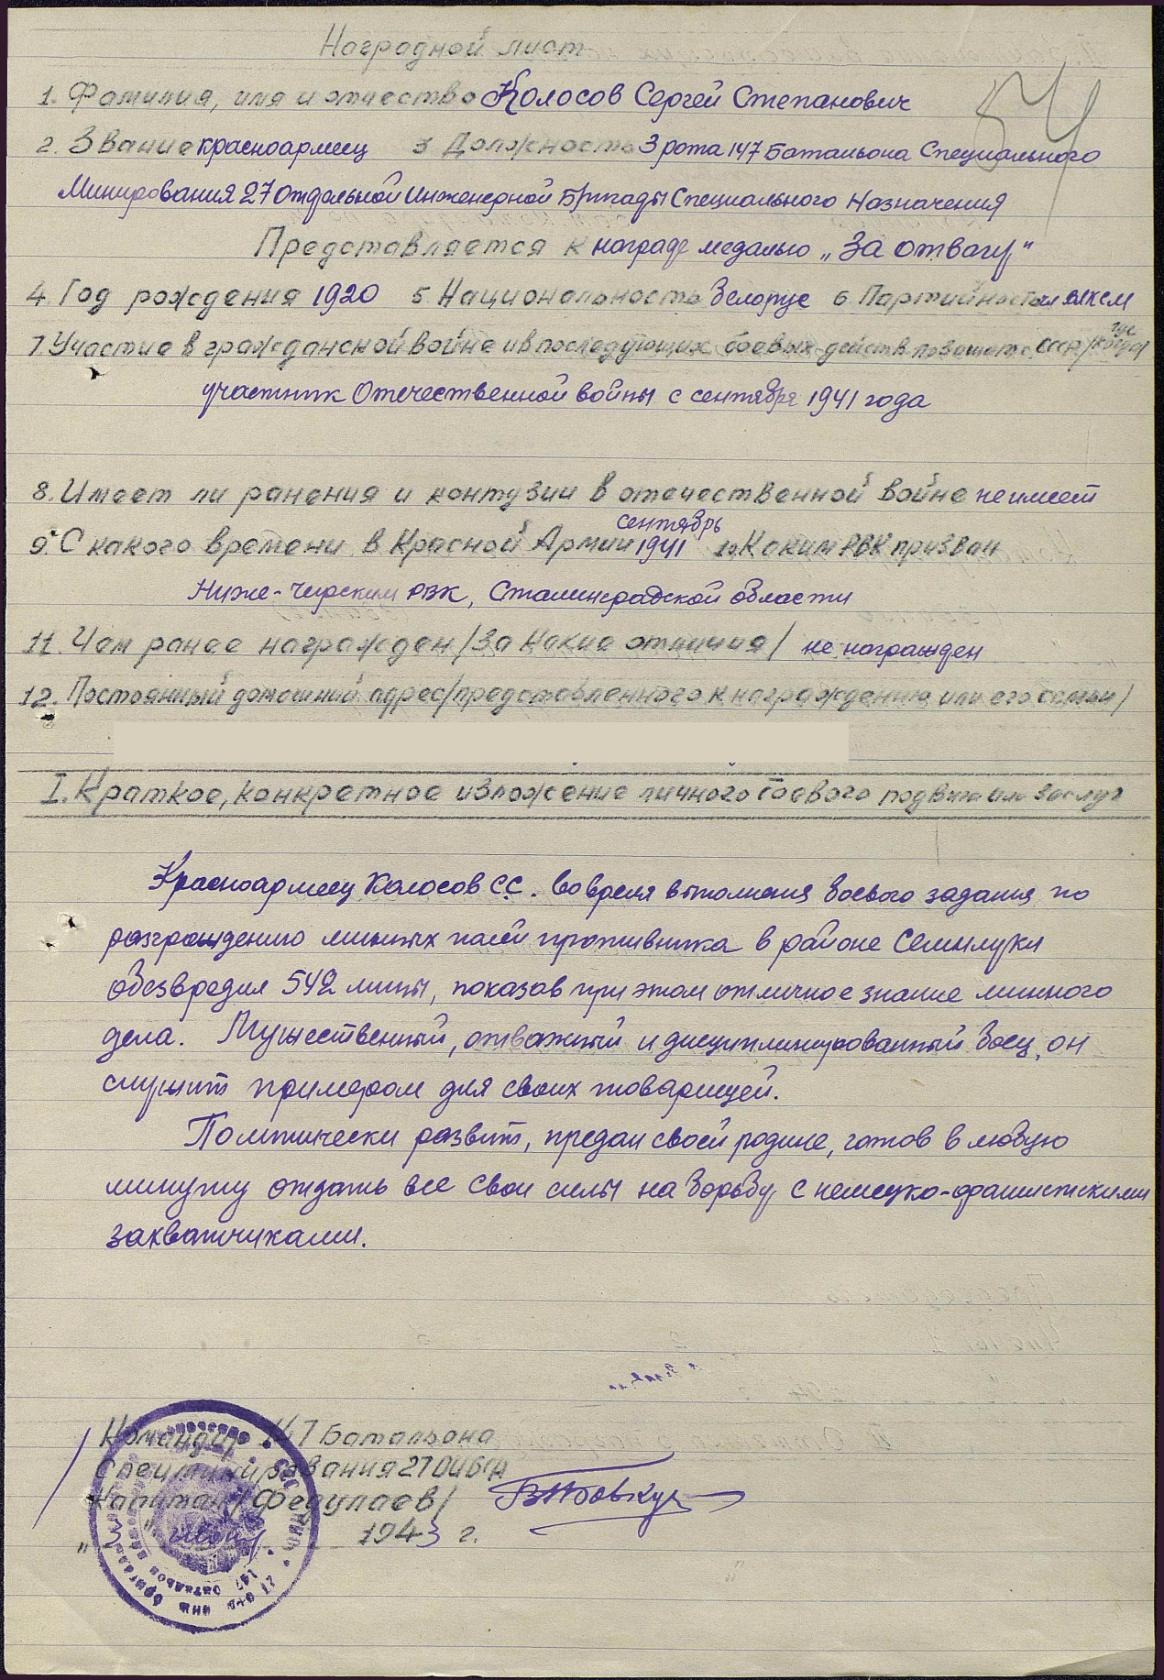 Наградной лист
54
1. Фамилия, имя и отчество Колосов Сергей Степанович
2. Звание красноармеец 3 Должность 3 рота 147 Батальона Специального
Минирования 27 Отдельной Инженерной Бригады Специального Назначения
Представляется к награде медалью „За отвагу"
4. Год рождения 1920 5. Национальность белорус 6. Партийность чл ВЛКСМ
7. Участие в гражданской войне и в последующих боевых действ по защите СССР /где когда/
участник Отечественной войны с сентября 1941 года
8. Имеет ли ранения и контузии в отечественной войне не имеет
9. С какого времени в Красной Армии сентябрь 1941 10. Каким РВК призван
Ниже-Чирским РВК, Сталинградской области
11. Чем ранее награжден /За какие отличия/ не награжден
12. Постоянный домашний адрес /представленного к награждению или его семьи/
I. Краткое, конкретное изложение личного боевого подвига или заслуг
Красноармеец Колосов С.С. во время выполнения боевого задания по
разграждению минных полей противника в районе Семилуки
обезвредил 542 мины, показав при этом отличное знание минного
дела. Мужественный, отважный и дисциплинированный боец, он
служит примером для своих товарищей.
Политически развит, предан своей родине, готов в любую
минуту отдать все свои силы на борьбу с немецко-фашистскими
захватчиками.
Командир 147 Батальона
Спецминирования 27 ОИБСН
Капитан /Федулаев/
„3" июня 1943 г.